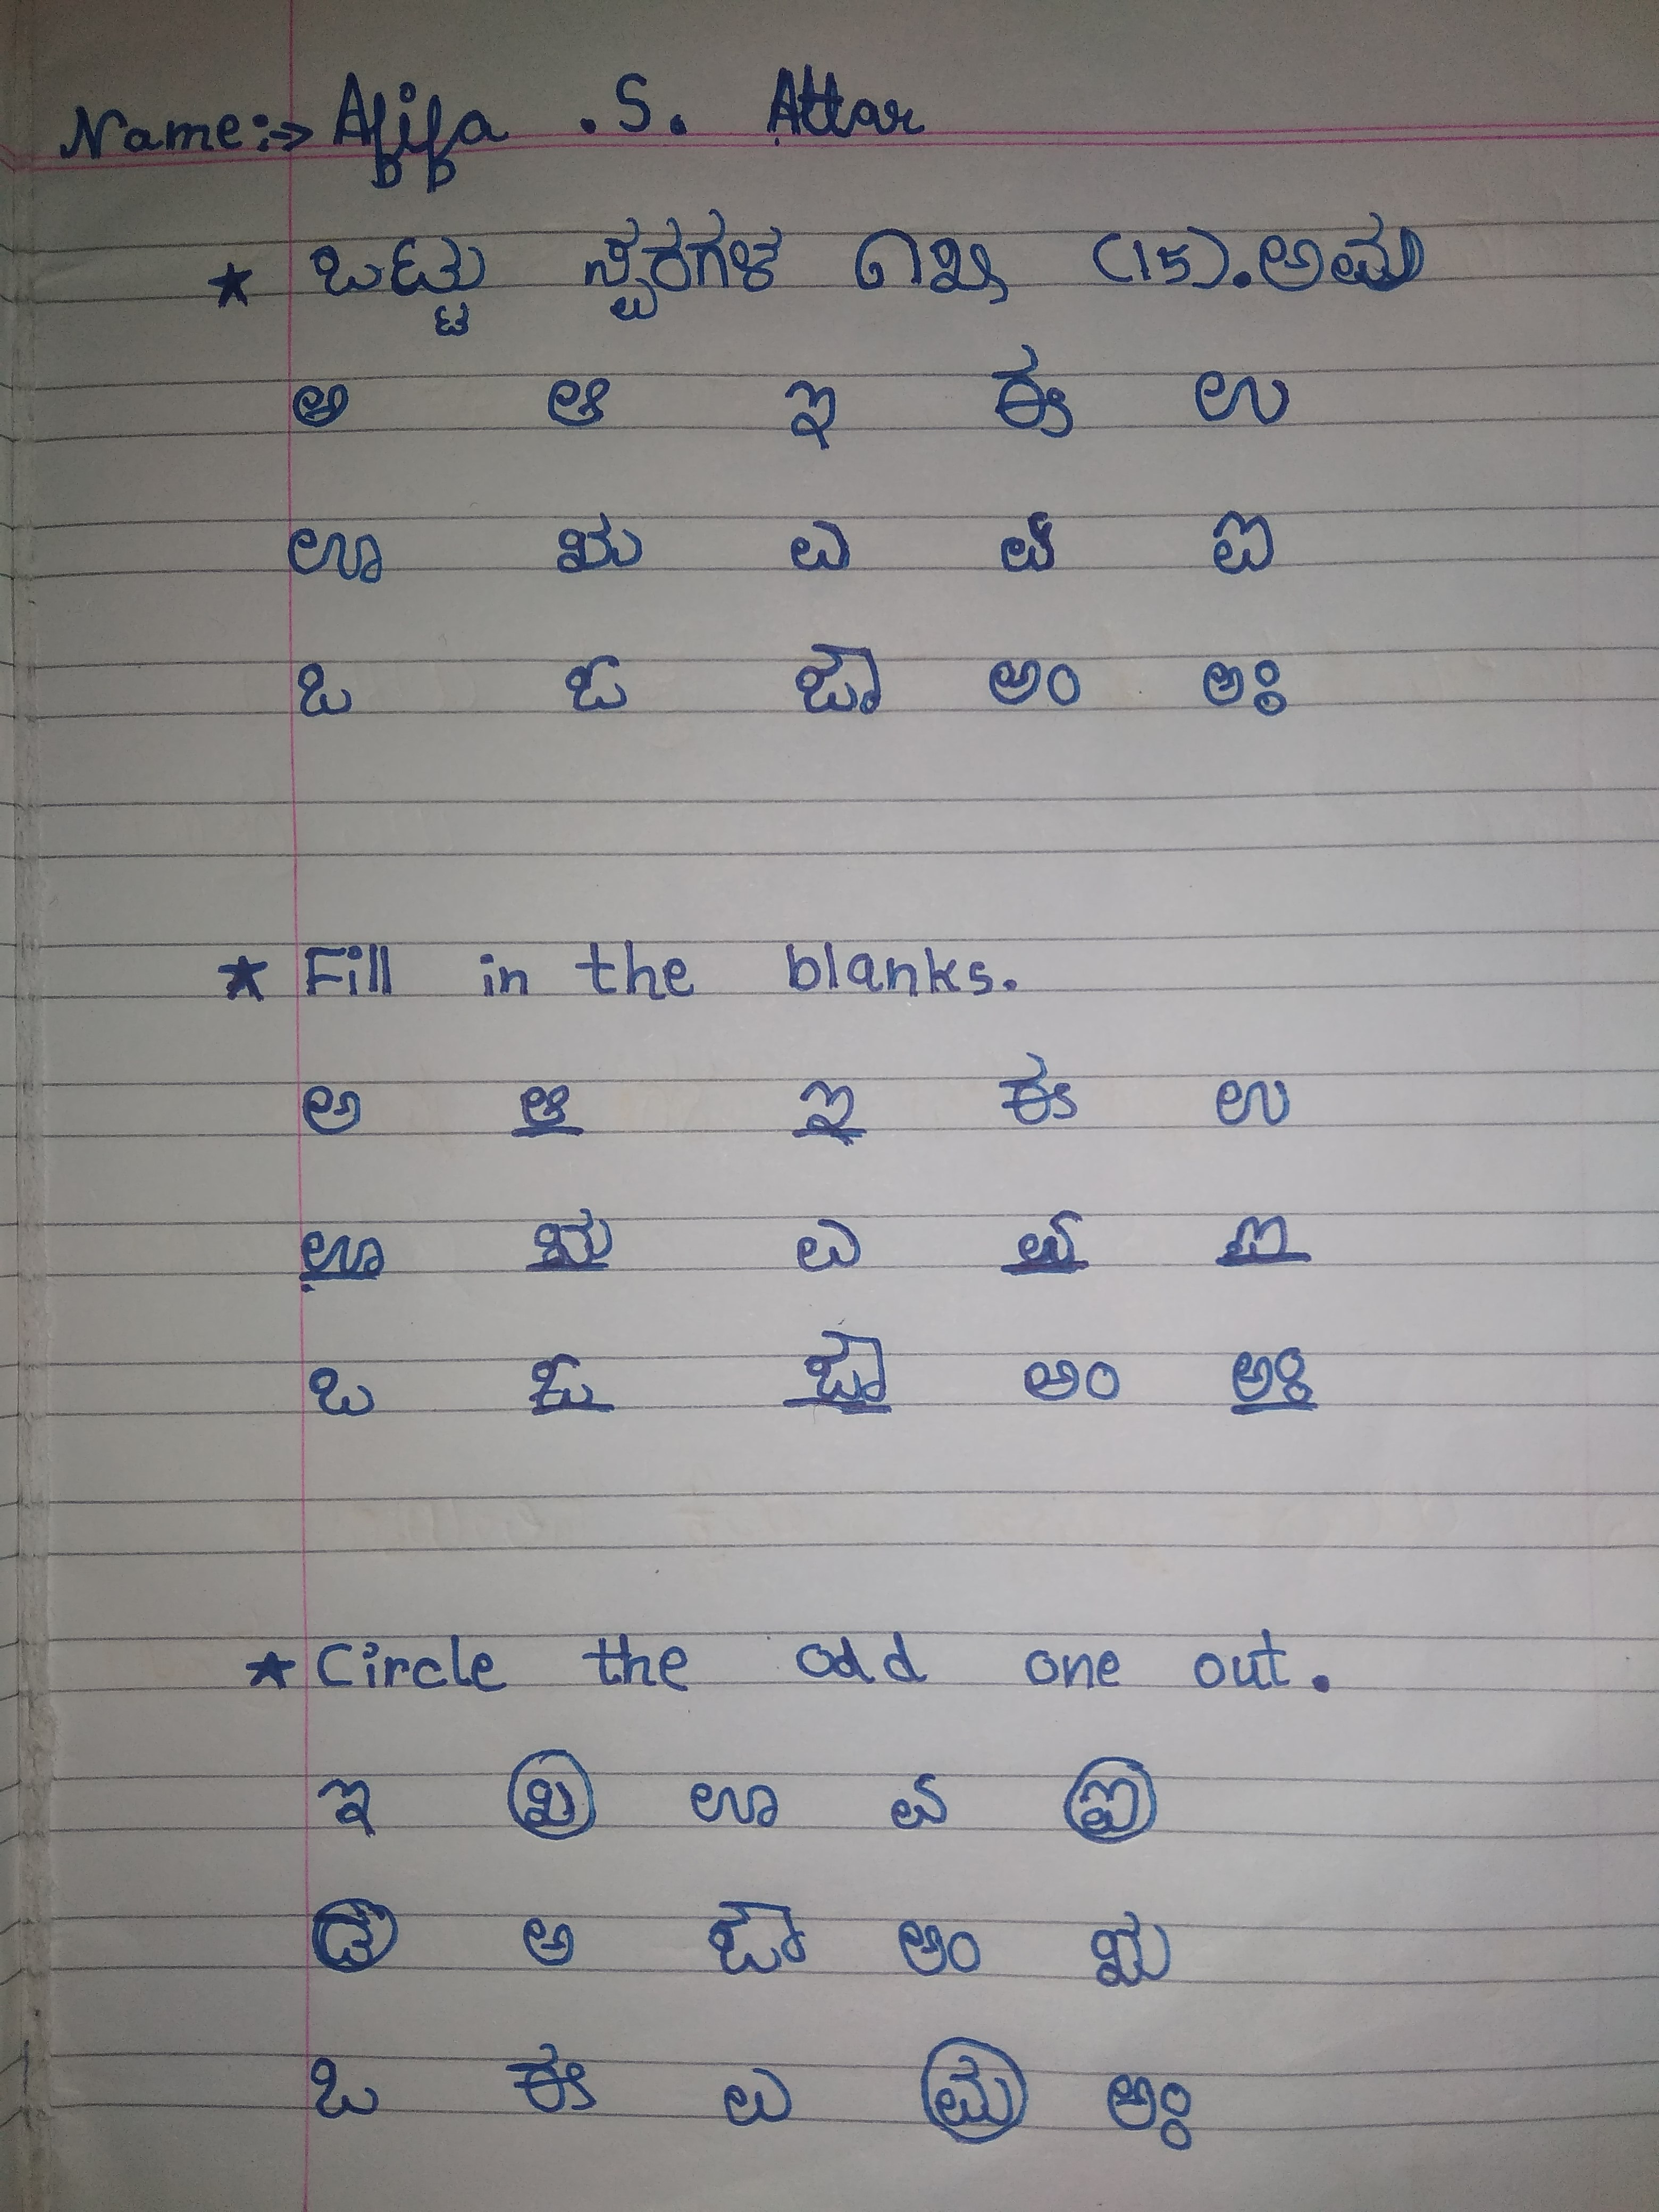 Name:→ Afifa .S. Attar
★ ಒಟ್ಟು ಸ್ವರಗಳ (15).
ಅ ಆ ಇ ಈ ಉ
ಊ ಋ ಎ ಏ ಐ
ಒ ಓ ಔ ಅಂ ಅಃ
★ Fill in the blanks.
ಅ ಆ ಇ ಈ ಉ
ಊ ಋ ಎ ಏ ಐ
ಒ ಓ ಔ ಅಂ ಅಃ
★ Circle the odd one out.
ಇ ಖ ಊ ಏ ಐ
ಅ ಔ ಅಂ ಋ
ಒ ಈ ಎ ಮ ಅಃ